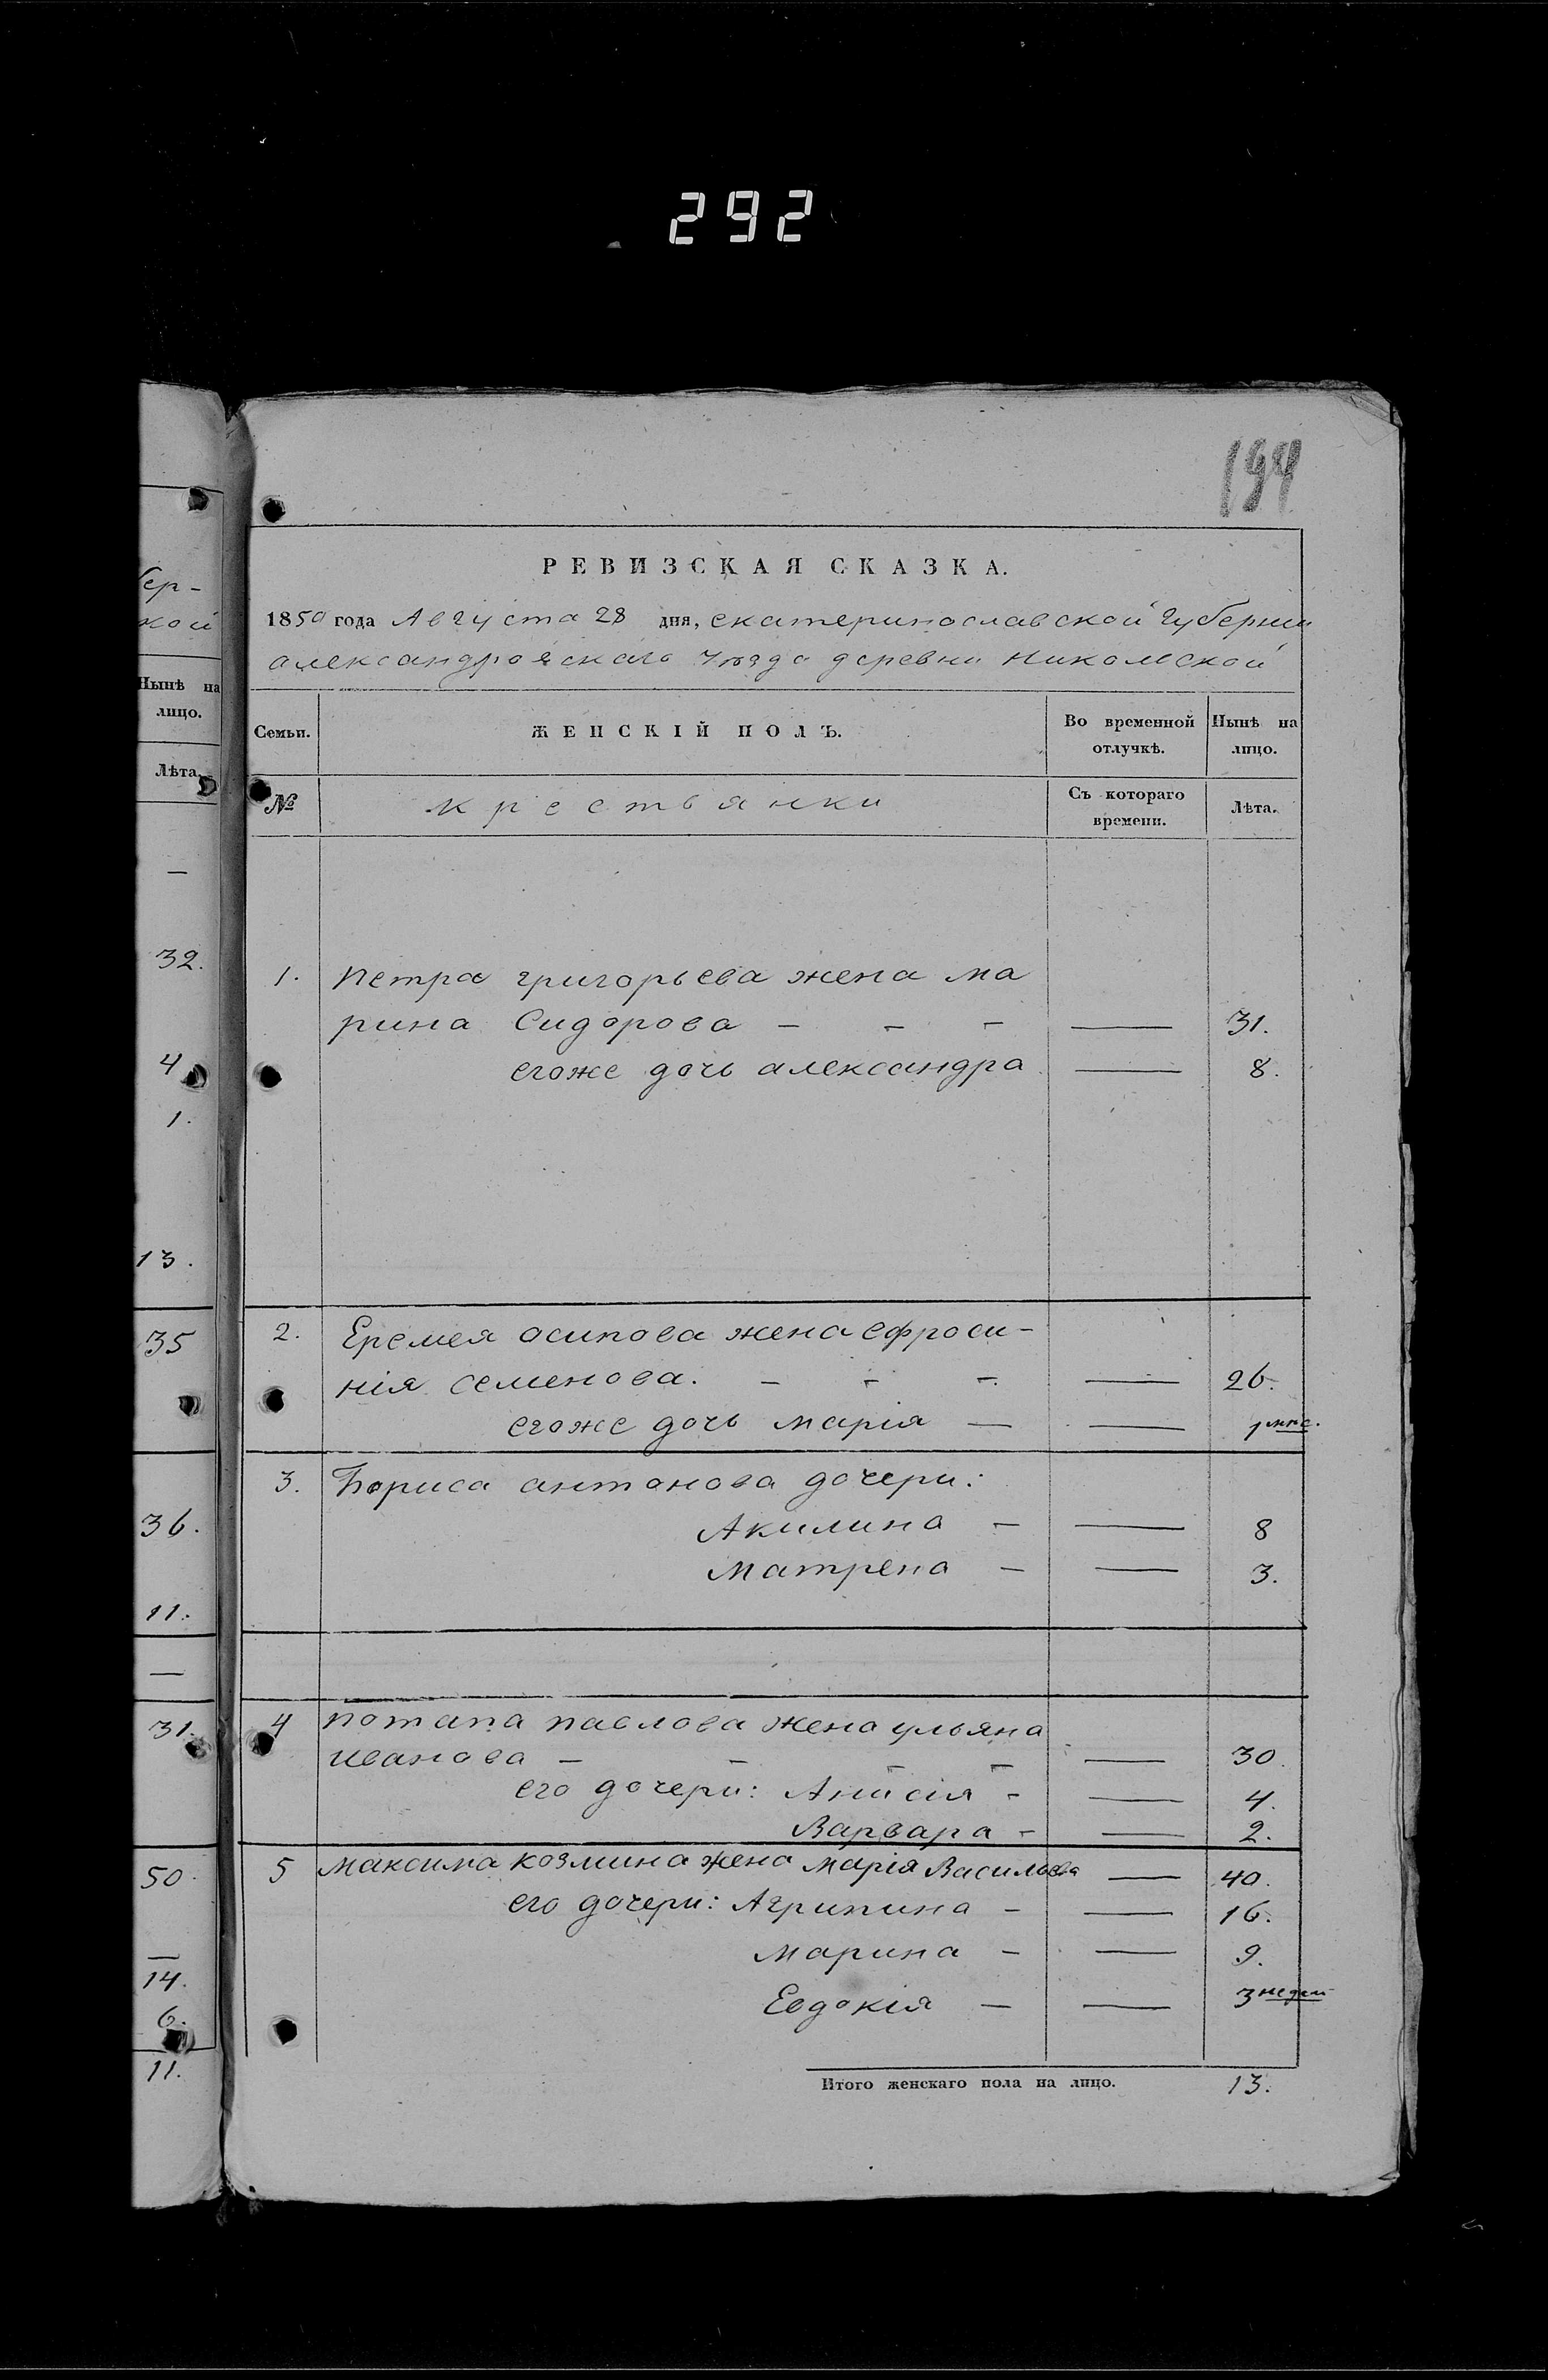 292
194
бер-
кой
Нынѣ на
лицо.
Лѣта.
—
32.
4
1.
13.
35
36.
11.
—
31.
50.
—
14.
6.
11.
РЕВИЗСКАЯ СКАЗКА.
1850 года Августа 28 дня, екатеринославской Губернии
александровскаго уѣзда деревни Никольской
Семьи. ЖЕНСКІЙ ПОЛЪ. Во временной отлучкѣ. Нынѣ на лицо.
№ крестьянки Съ котораго времени. Лѣта.
1. Петра григорьева жена ма
рина Сидорова — — — — 31.
егоже дочь александра — 8.
2. Еремея осипова жена ефроси-
нія семенова. — — — — 26.
егоже дочь марія — — 1 мѣс.
3. Бориса антонова дочери:
Акилина — — 8
Матрена — — 3.
4 потапа павлова жена ульяна
иванова — — — — 30.
его дочери: Анисія — — 4.
Варвара — — 2.
5 Максима козмина жена марія Васильева — 40.
его дочери: Агрипина — — 16.
Марина — — 9.
Евдокія — — 3 недѣли
Итого женскаго пола на лицо. 13.